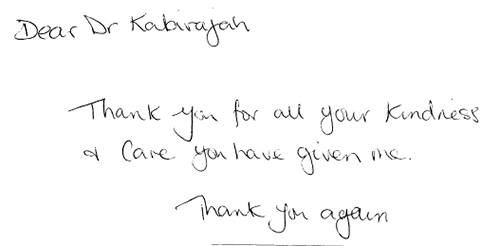 Dear Dr Kabirajah
Thank you for all your kindness
& Care you have given me.
Thank you again